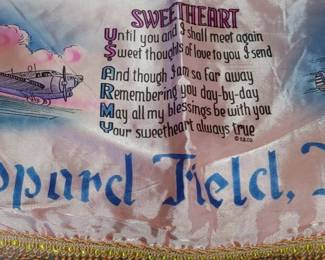 SWEETHEART
Until you and I shall meet again
Sweet thoughts of love to you I send
And though I am so far away
Remembering you day-by-day
May all my blessings be with you
Your sweetheart always true
Field,